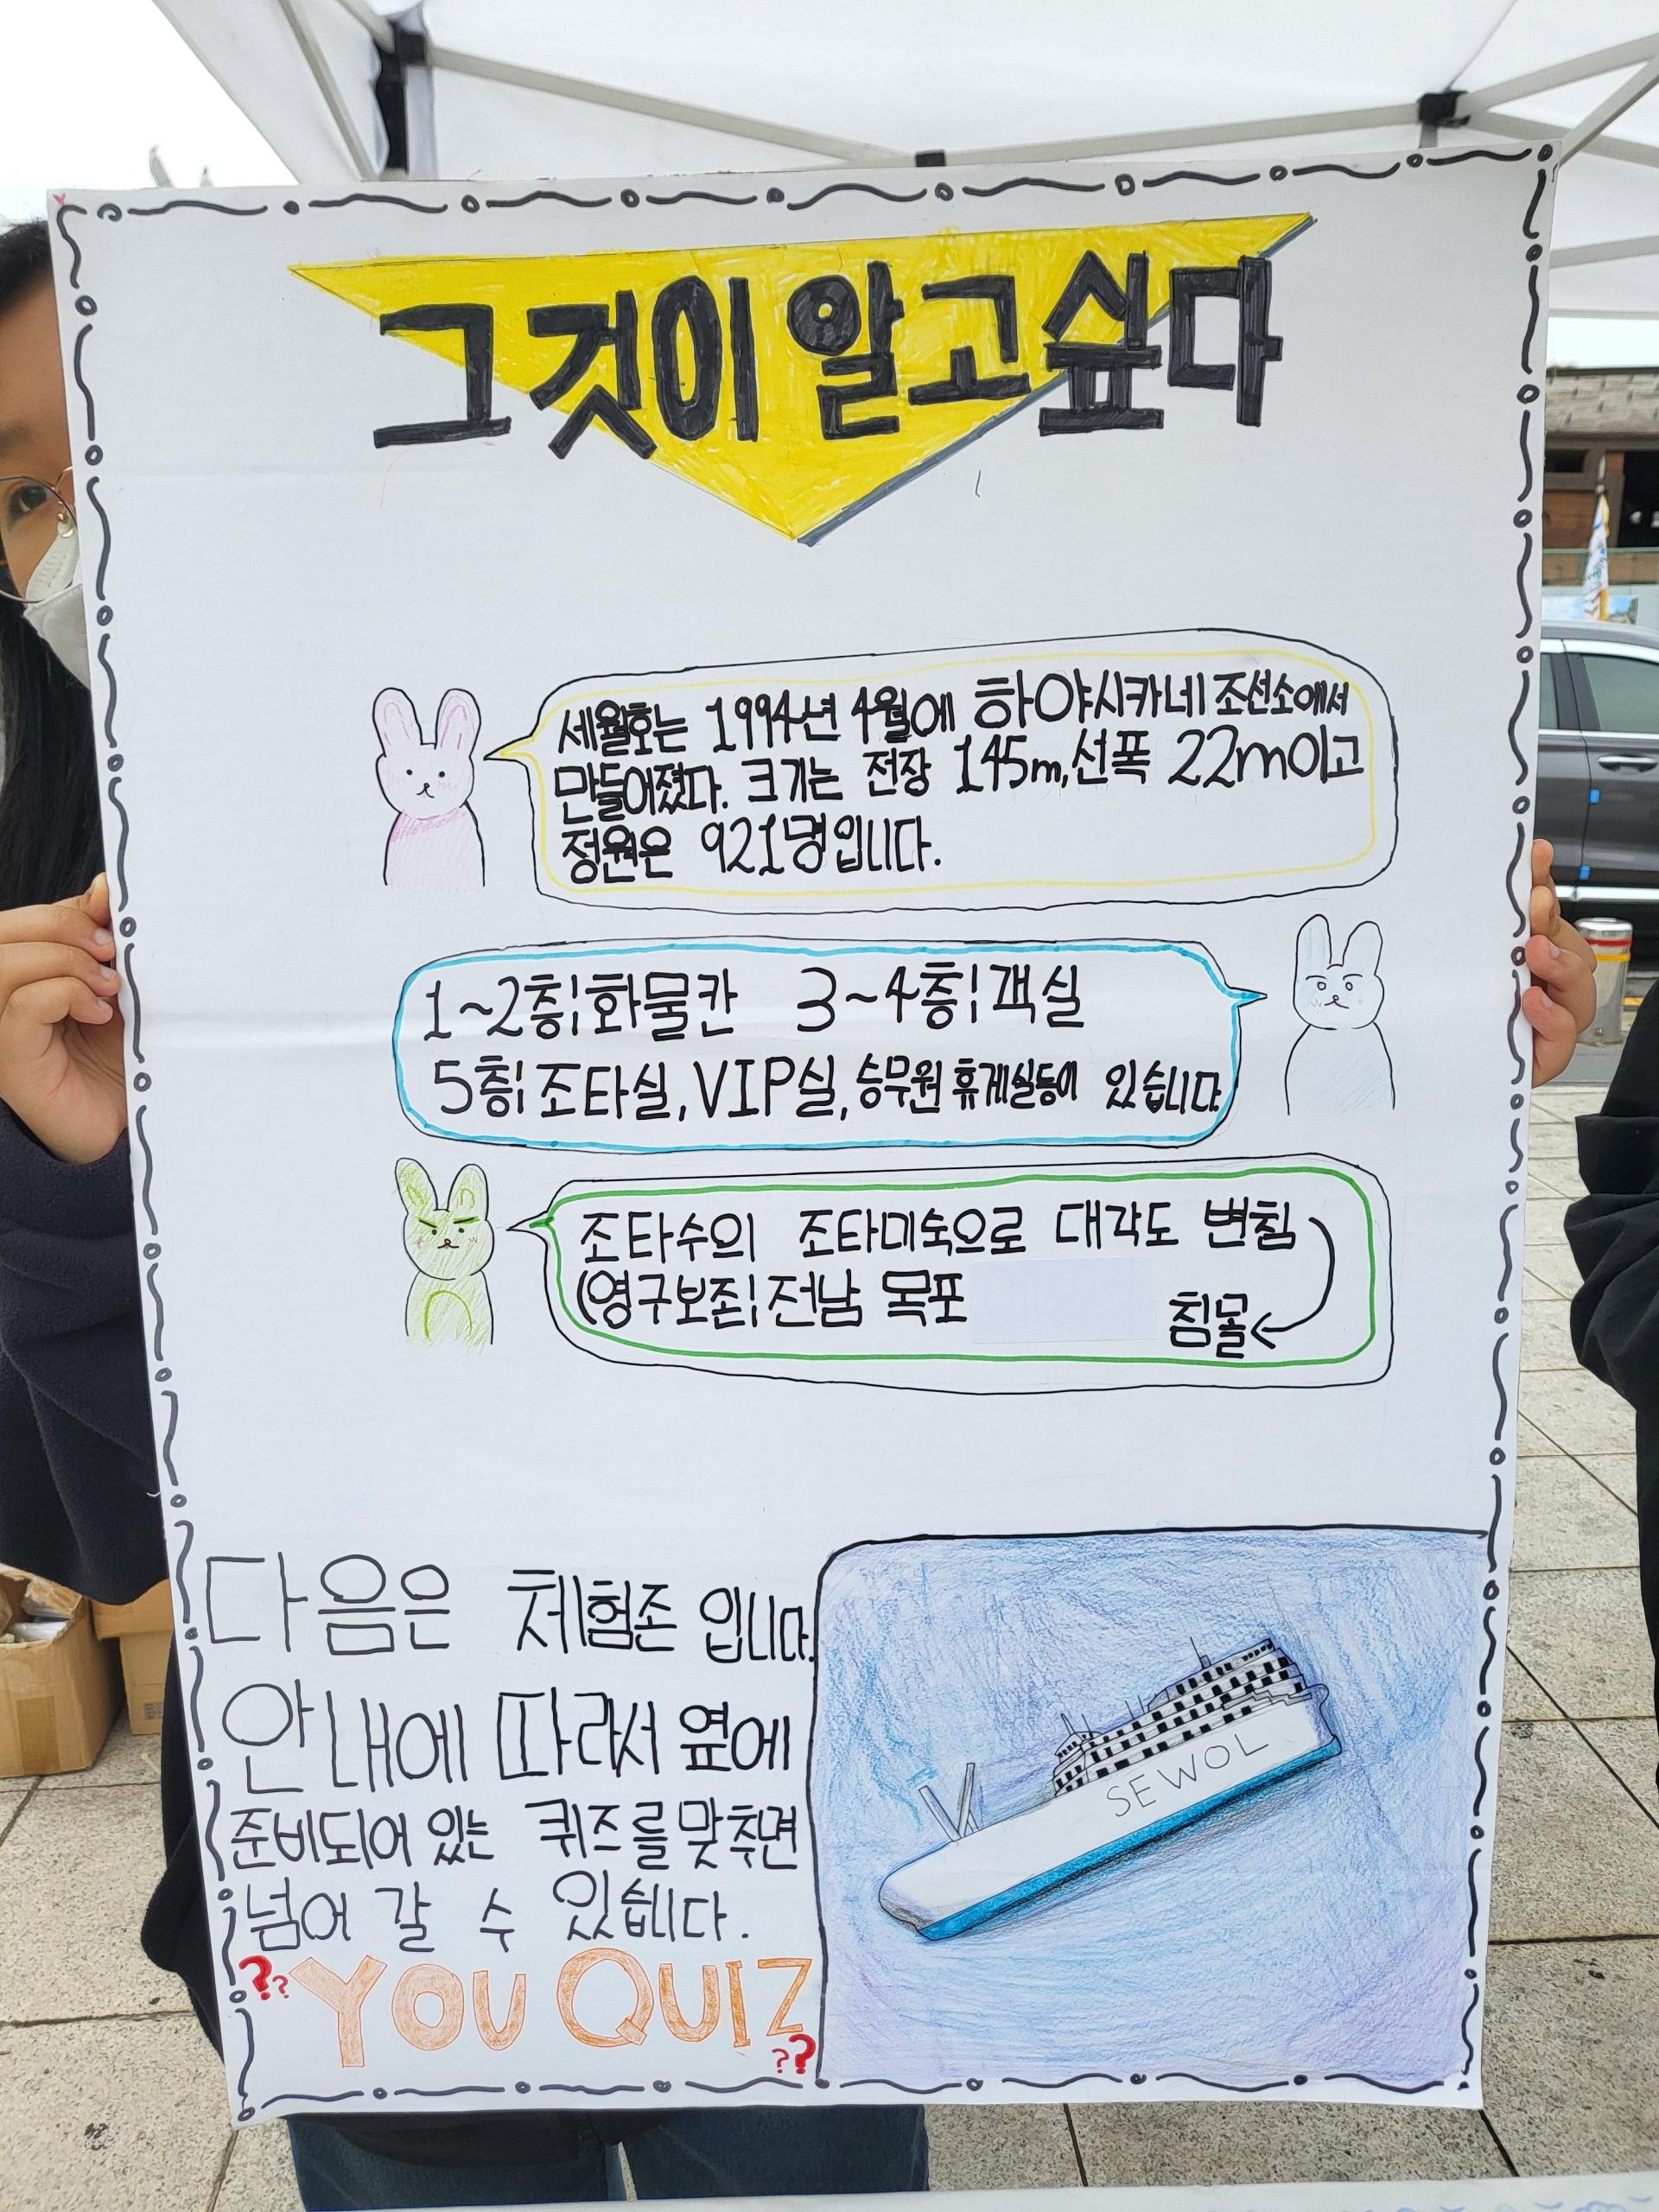 그것이 알고싶다
세월호는 1994년 4월에 하야시카네 조선소에서
만들어졌다. 크기는 전장 145m, 선폭 22m이고
정원은 921명입니다.
1~2층¦화물칸 3~4층¦객실
5층¦조타실, VIP실, 승무원 휴게실등이 있습니다
조타수의 조타미숙으로 대각도 변침
(영구보존¦전남 목포
침몰
다음은 체험존 입니다.
안내에 따라서 옆에
준비되어 있는 퀴즈를 맞추면
넘어 갈 수 있습니다.
?? YOU QUIZ ??
SEWOL